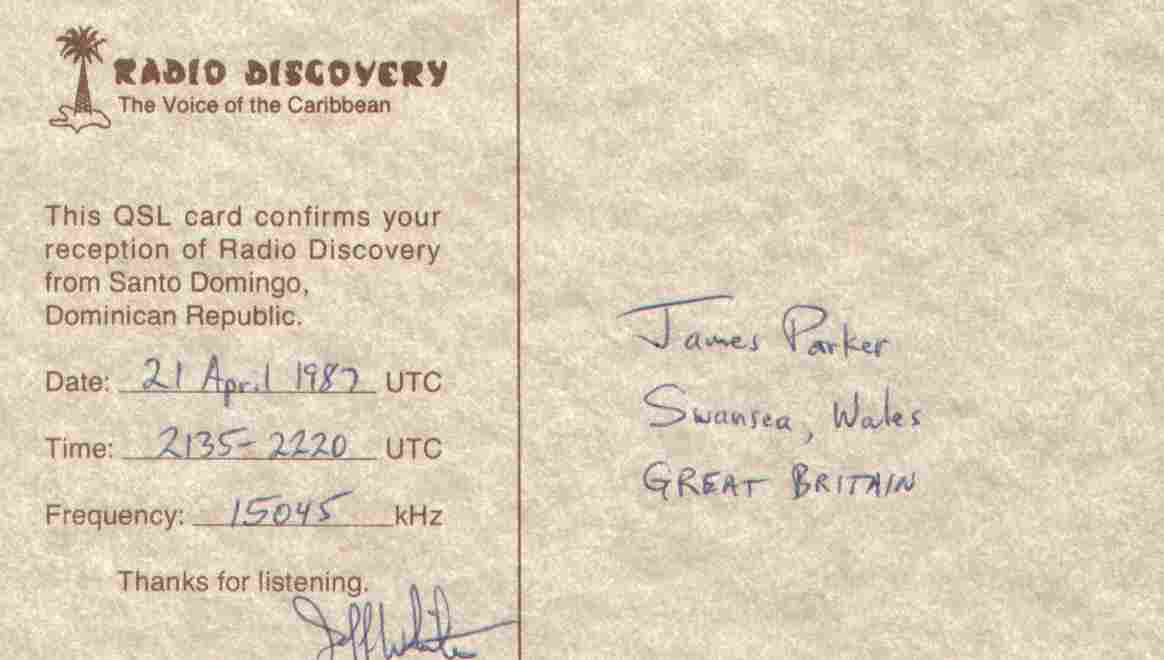 RADIO DISCOVERY
The Voice of the Caribbean
This QSL card confirms your
reception of Radio Discovery
from Santo Domingo,
Dominican Republic.
Date: 21 April 1987 UTC
Time: 2135-2220 UTC
Frequency: 15045 kHz
Thanks for listening.
Jeff White
James Parker
Swansea, Wales
GREAT BRITAIN